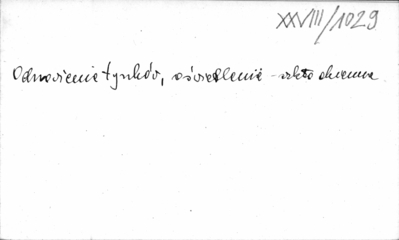 XXVIII/1029
Odnowienie tynków, oświetlenie - szkło okienne